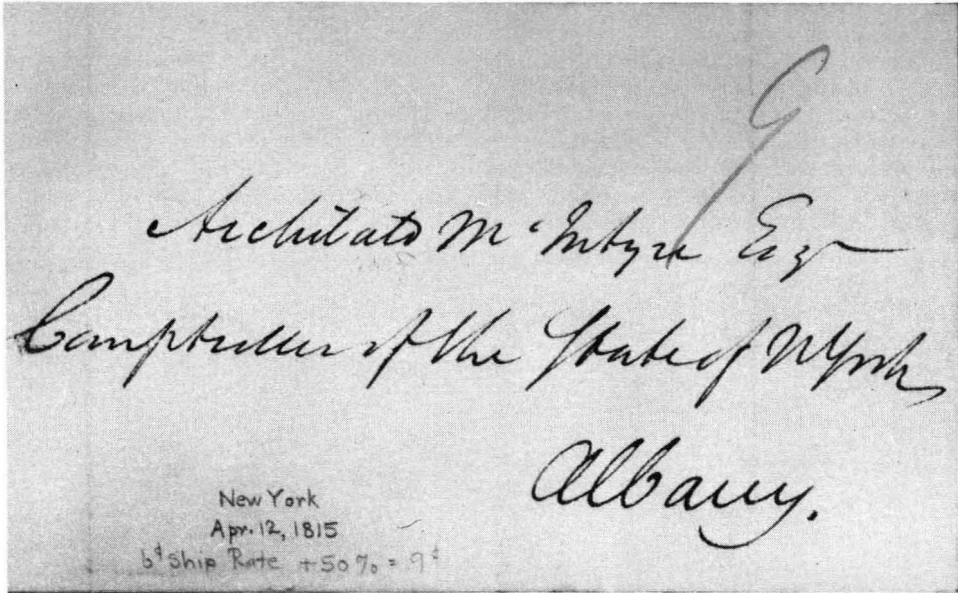 9
Archibald McIntyre Esqr
Comptroller of the State of N York
Albany.
New York
Apr. 12, 1815
6¢ Ship Rate + 50% = 9¢